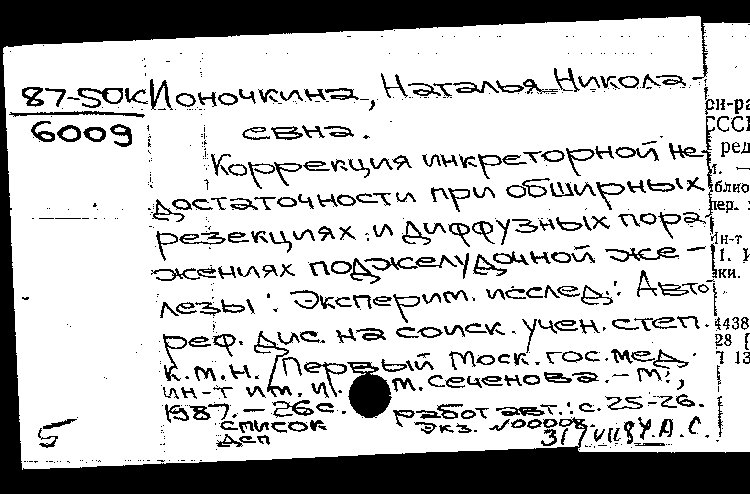 87-50К Ионочкина, Наталья Никола-
6009 евна.
Коррекция инкреторной не-
достаточности при обширных
резекциях и диффузных пора-
жениях поджелудочной же-
лезы: Эксперим. исслед.: Авто-
реф. дис. на соиск. учен. степ.
к.м.н. /Первый Моск. гос. мед.
ин-т им. И. м. Сеченова. - М.,
1987. - 26 с.
список работ авт.: с. 25-26.
ДСП Экз. №00008.
5